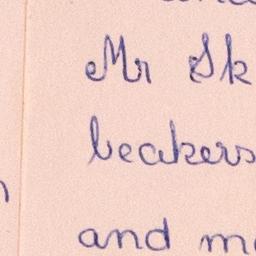 Mr Sk
beakers
and m